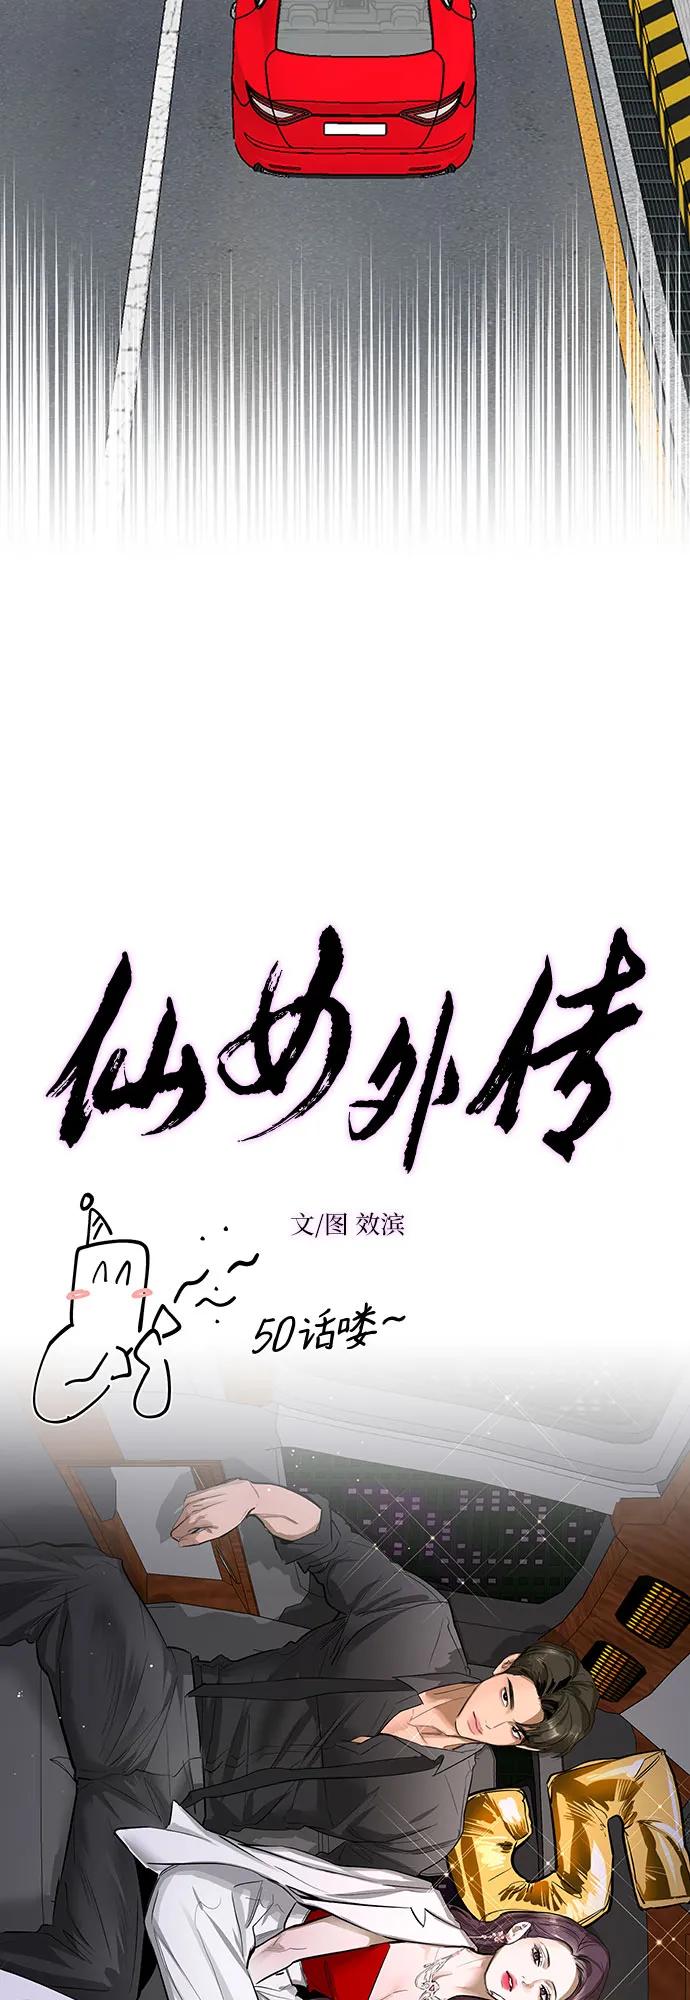 仙女外传
文/图 效滨
50话喽~
5